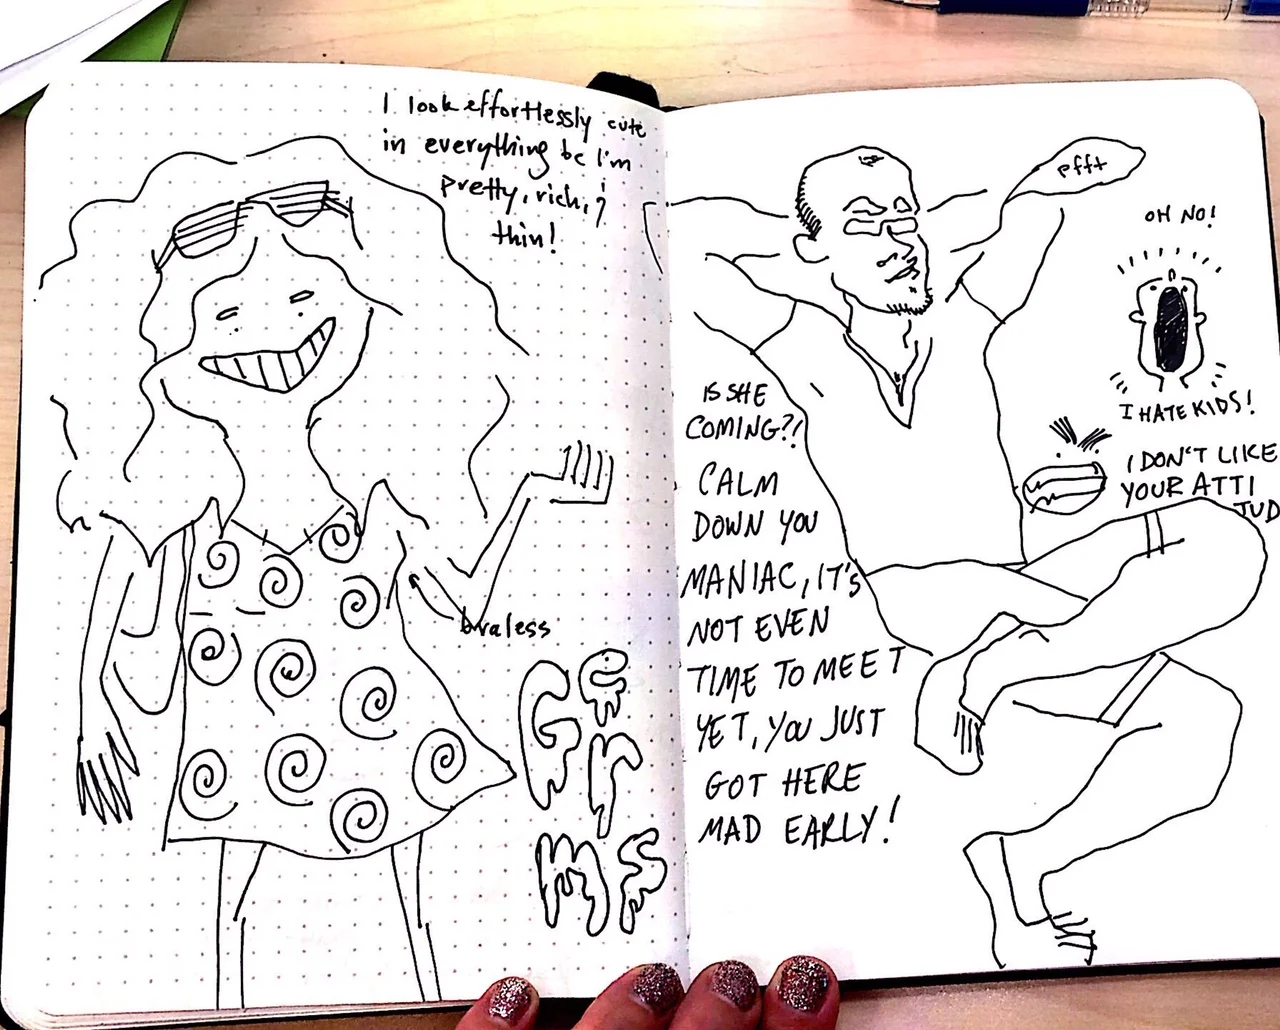 I look effortlessly cute
in everything bc I'm
pretty, rich, &
thin!
braless
Ge
r
ms
pfft
OH NO!
I HATE KIDS!
I DON'T LIKE
YOUR ATTI
TUD
IS SHE
COMING?!
CALM
DOWN YOU
MANIAC, IT'S
NOT EVEN
TIME TO MEET
YET, YOU JUST
GOT HERE
MAD EARLY!